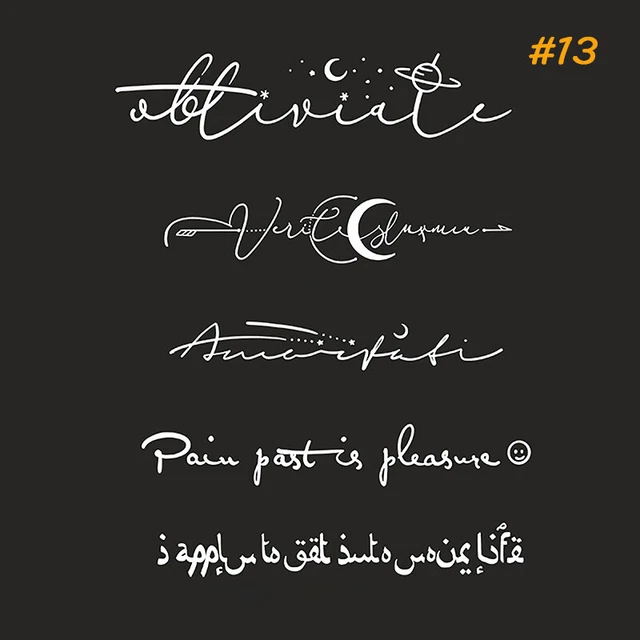 #13
obliviate
Veritas lux mea
Amor fati
Pain past is pleasure
i to